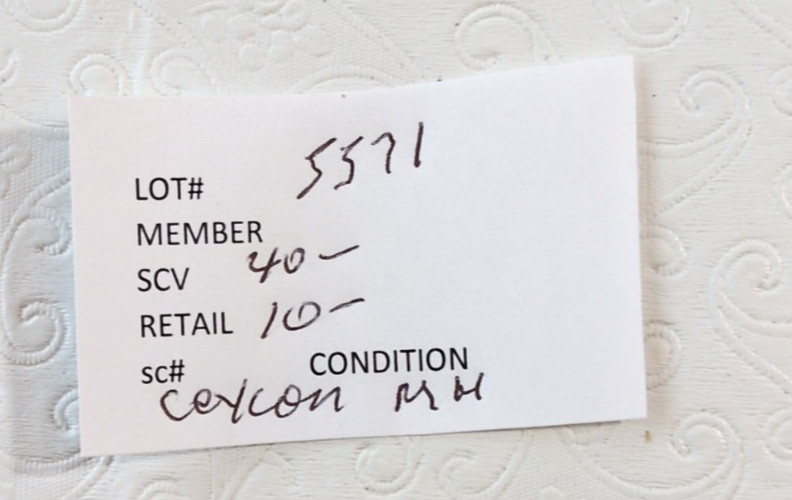 LOT# 5571
MEMBER
SCV 40-
RETAIL 10-
sc# CONDITION
Ceylon MH